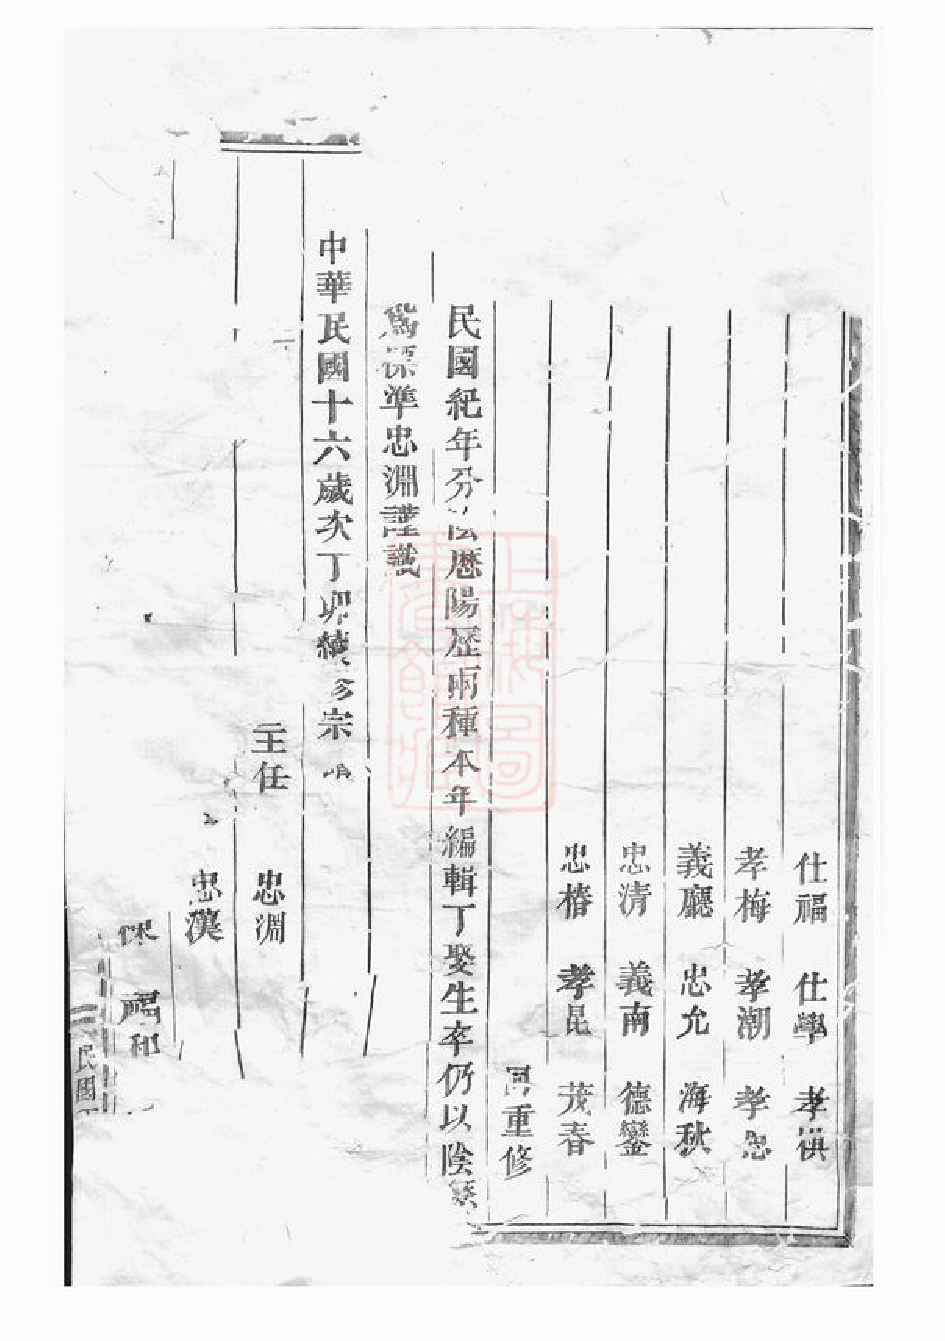 仕福 仕學 孝祺
孝梅 孝潮 孝忠
義廳 忠允 海秋
忠清 義南 德鑾
忠椿 孝昆 茂春
同重修
民國紀年分陰歷陽歷兩種本年編輯丁娶生卒仍以陰歷
為標準忠淵謹識
中華民國十六歲次丁卯續修宗
主任 忠淵
忠漢
福和
民國
上海圖書館藏